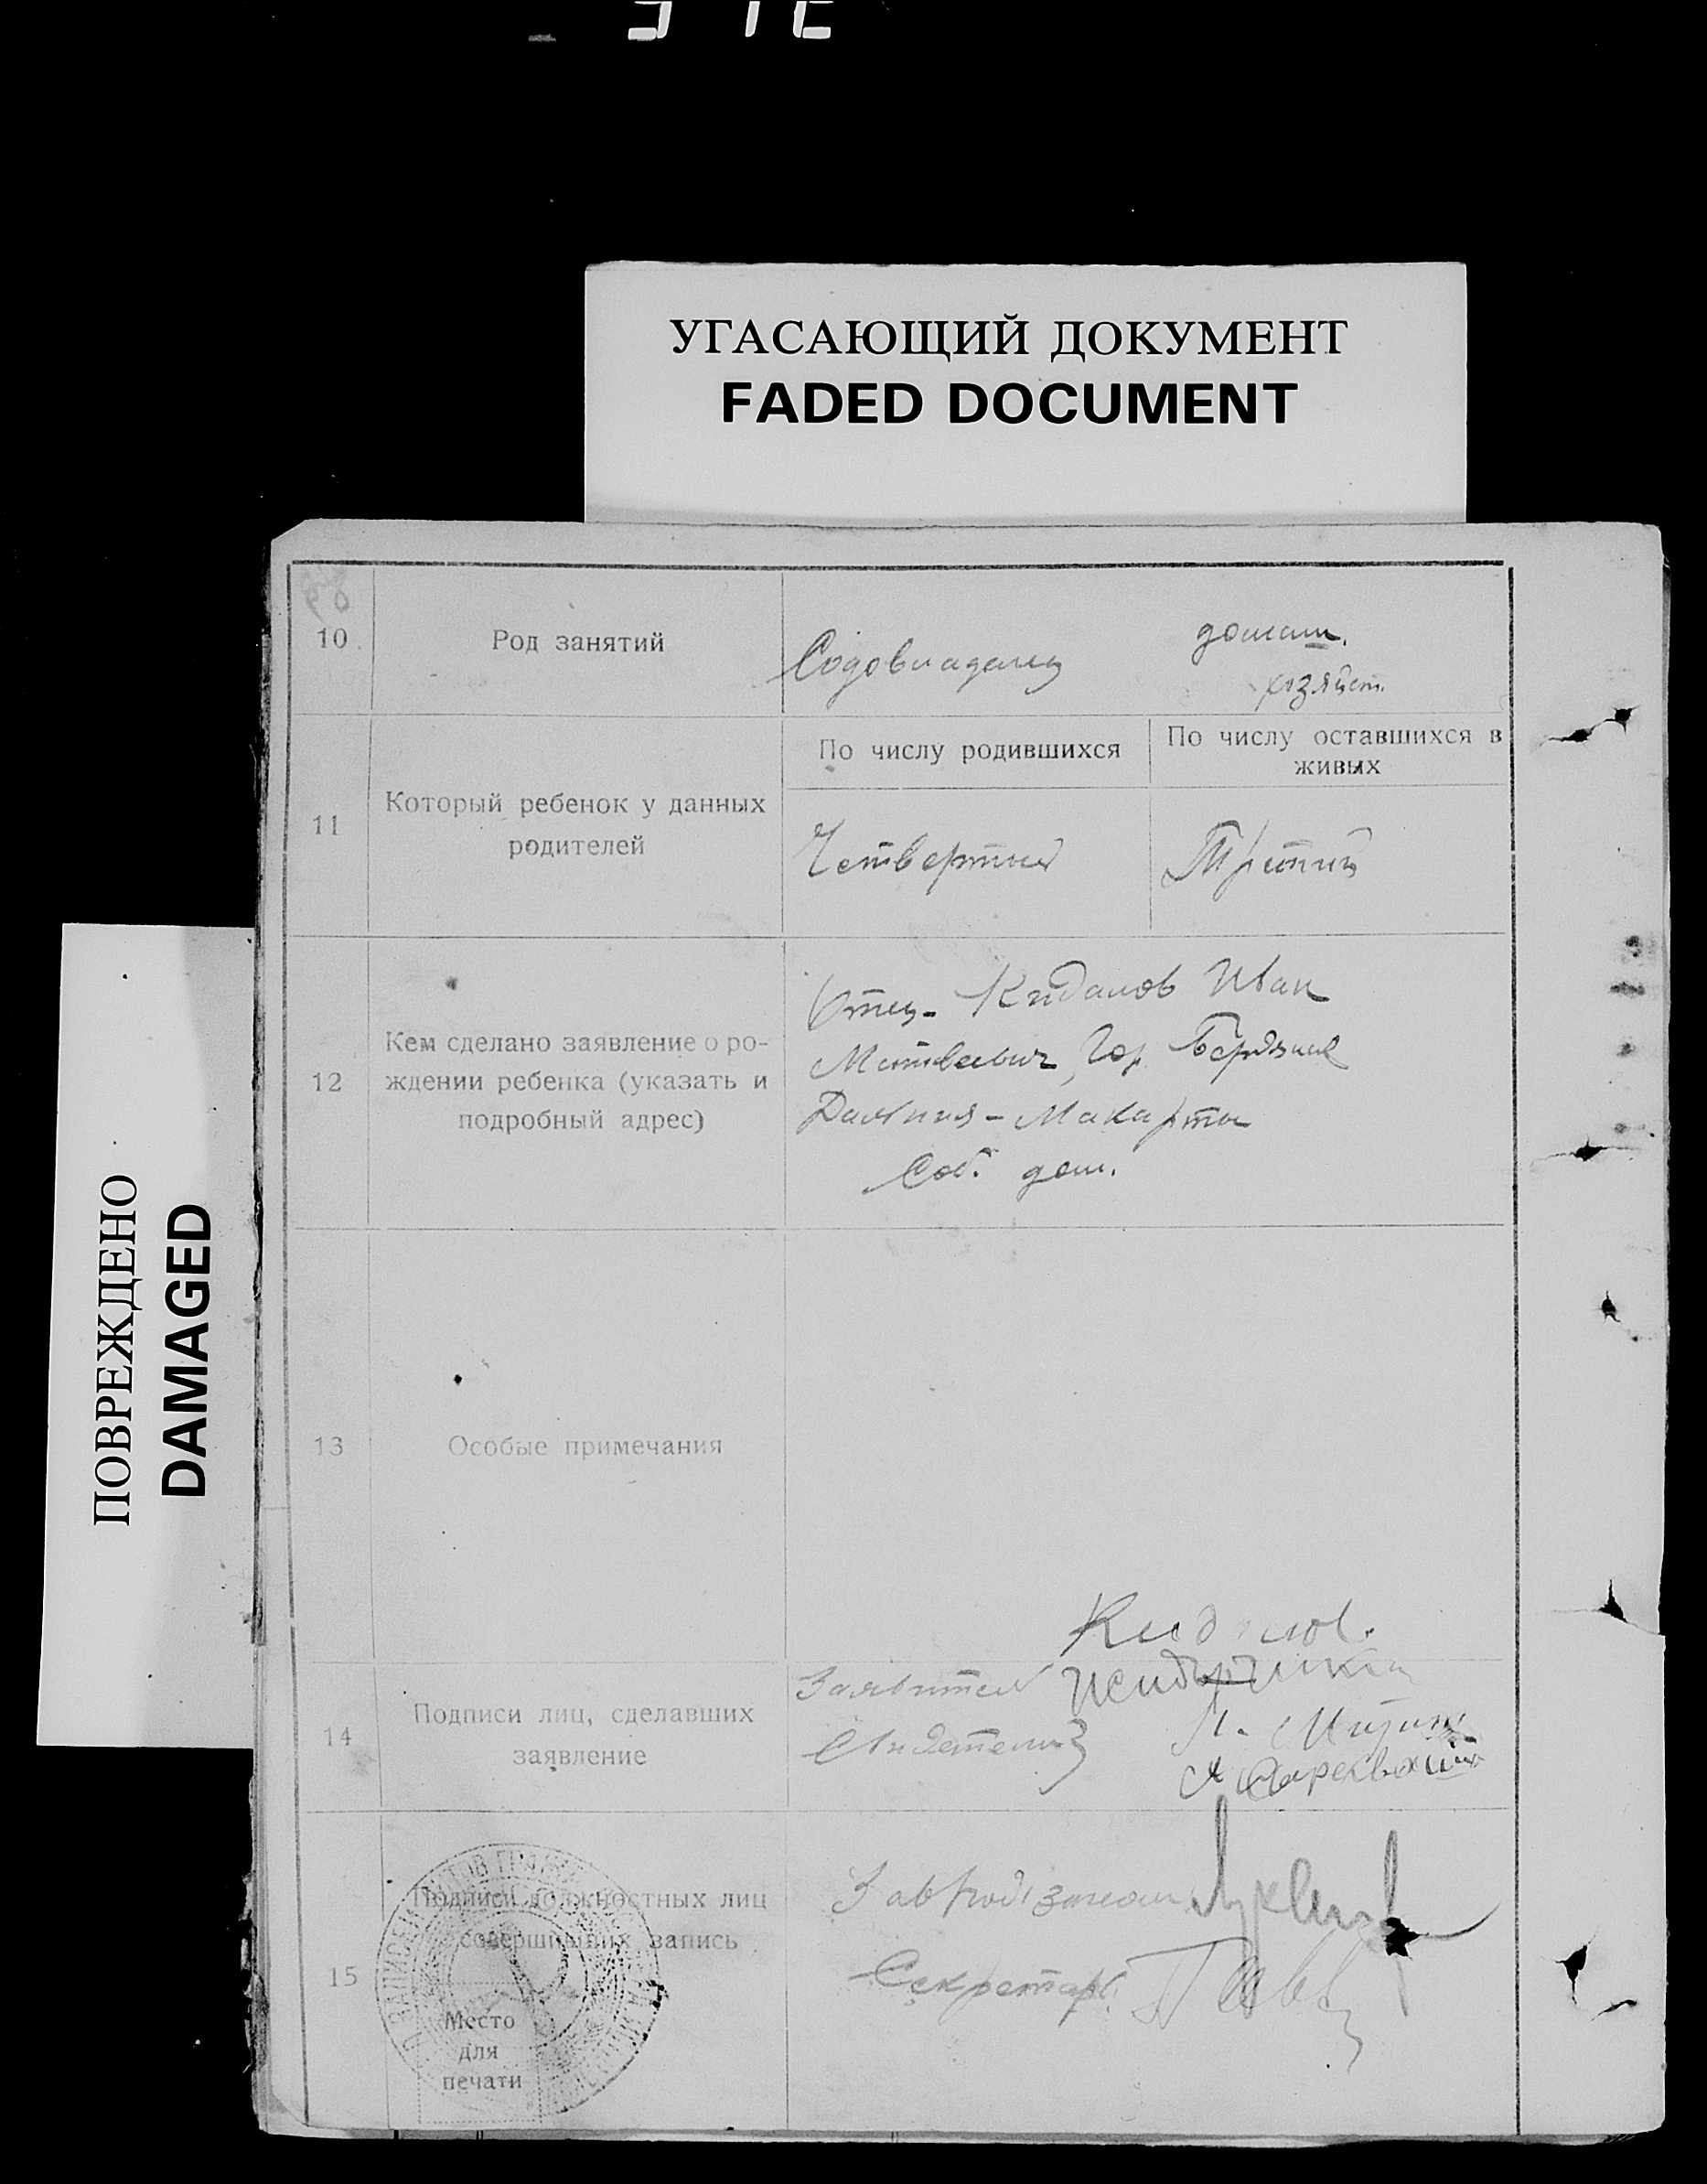 УГАСАЮЩИЙ ДОКУМЕНТ
FADED DOCUMENT
ПОВРЕЖДЕНО
DAMAGED
10
Род занятий
Содовладелец
домаш.
хозяйст.
11
Который ребенок у данных
родителей
По числу родившихся
По числу оставшихся в
живых
Четвертый
Третий
12
Кем сделано заявление о ро-
ждении ребенка (указать и
подробный адрес)
Отец - Кидалов Иван
Матвеевич, Гор. Бердянск
Дальния - Макорты
Соб. дом.
13
Особые примечания
14
Подписи лиц, сделавших
заявление
Кидалов.
Заявител
Свидетели
15
Подписи должностных лиц
совершивших запись
Место
для
печати
Секретарь